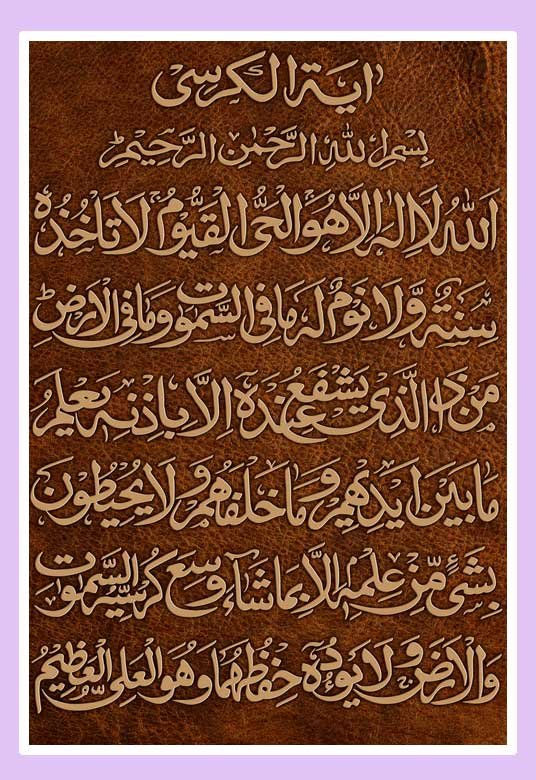 اٰیة الکرسی
بِسْمِ اللهِ الرَّحْمٰنِ الرَّحِیْمِ
اَللّٰهُ لَاۤ اِلٰهَ اِلَّا هُوَ الْحَیُّ الْقَیُّوْمُ لَا تَاْخُذُهٗ
سِنَةٌ وَّلَا نَوْمٌ لَهٗ مَا فِی السَّمٰوٰتِ وَمَا فِی الْاَرْضِ
مَنْ ذَا الَّذِیْ یَشْفَعُ عِنْدَهٗۤ اِلَّا بِاِذْنِهٖ یَعْلَمُ
مَا بَیْنَ اَیْدِیْهِمْ وَمَا خَلْفَهُمْ وَلَا یُحِیْطُوْنَ
بِشَیْءٍ مِّنْ عِلْمِهٖۤ اِلَّا بِمَا شَآءَ وَسِعَ کُرْسِیُّهُ السَّمٰوٰتِ
وَالْاَرْضَ وَلَا یَـُٔوْدُهٗ حِفْظُهُمَا وَهُوَ الْعَلِیُّ الْعَظِیْمُ